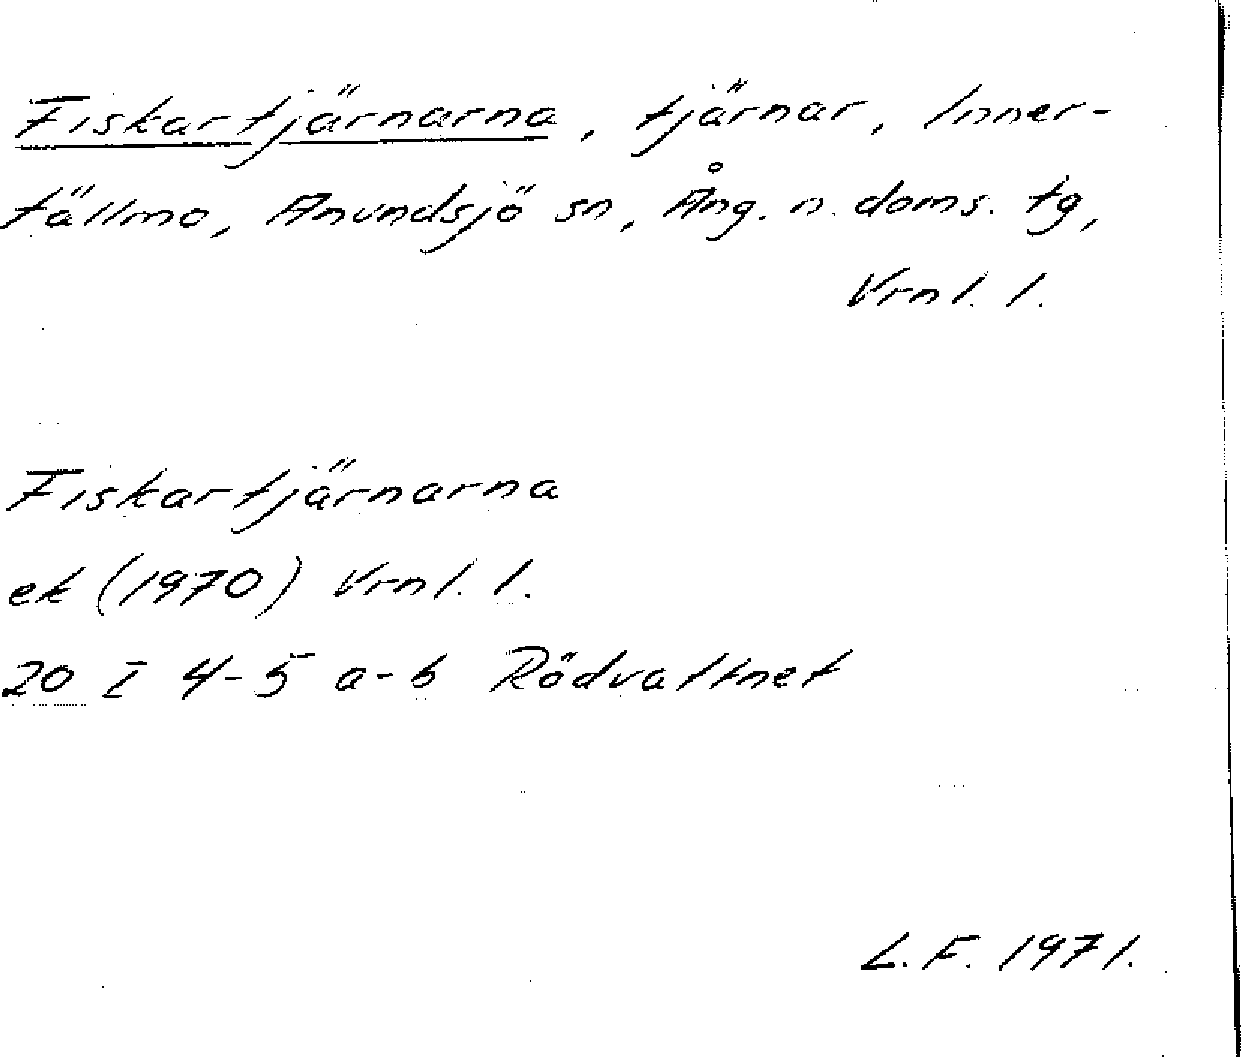 Fiskartjärnarna, tjärnar, Inner-
tällmo, Anundsjö sn, Ång. n. doms. tg,
Vrnl. l.
Fiskartjärnarna
ek (1970) Vrnl. l.
20 I 4-5 a-b Rödvattnet
L.F. 1971.